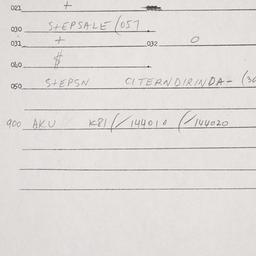 021 +
030 STEPSALE /057
031 + 032 0
060 $
050 STEPSN CITERNDIRINDA- (30
900 AKU K81(/144010 (/144020